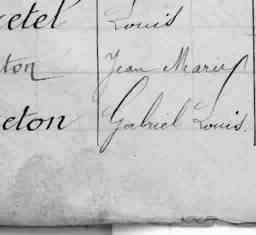 etel Louis
ton Jean Marie
eton Gabriel Louis.